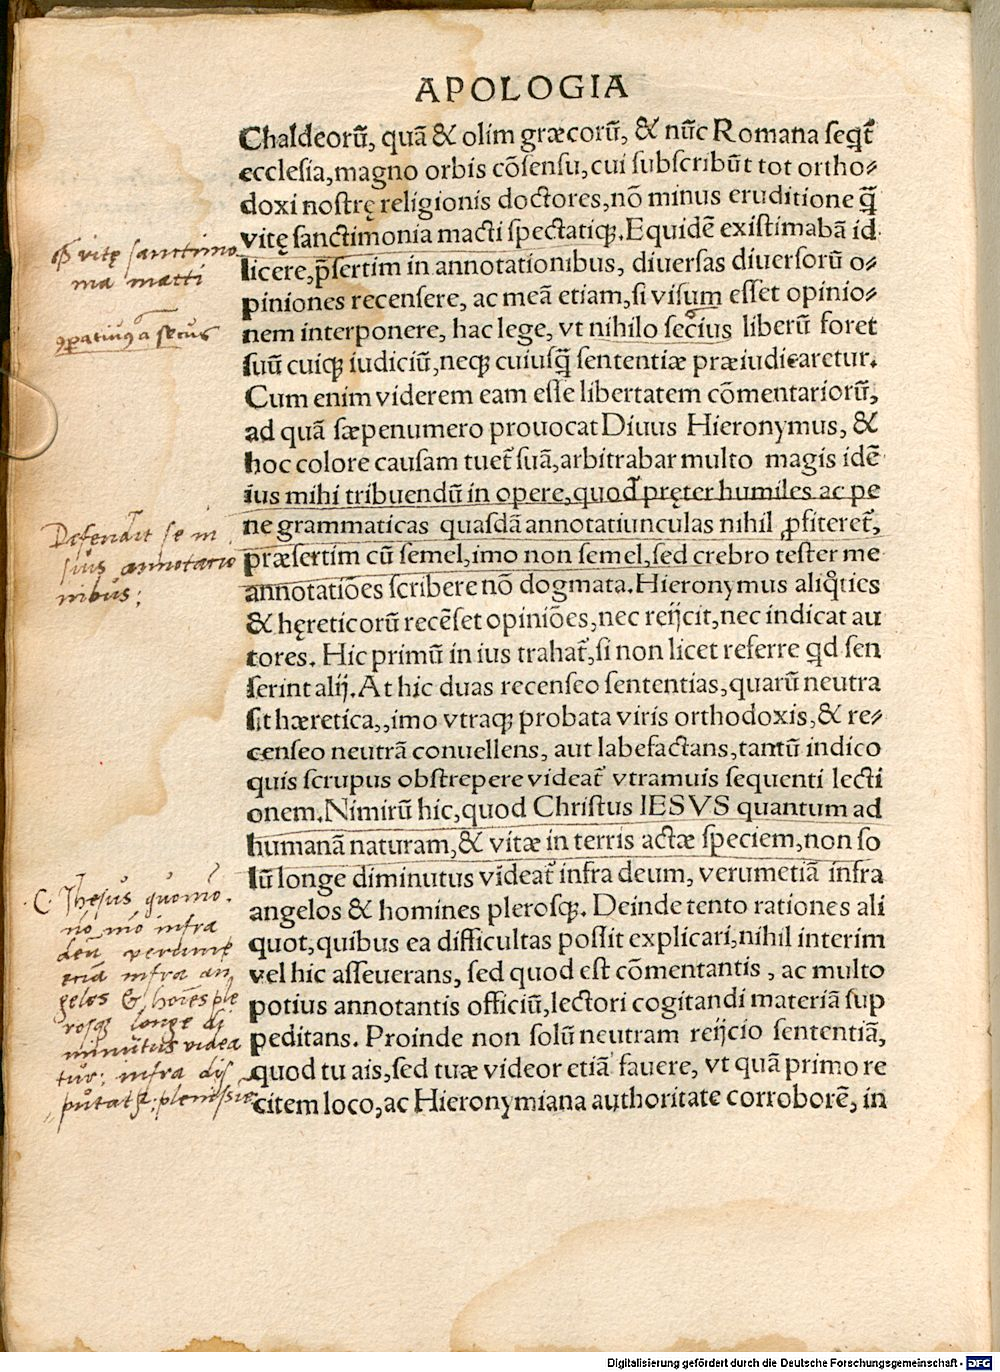 APOLOGIA
Chaldeorũ, quã & olim græcorũ, & nũc Romana seqt̃
ecclesia, magno orbis cõsensu, cui subscribũt tot ortho-
doxi nostrę religionis doctores, nõ minus eruditione q̃
vitę sanctimonia macti spectatiqꝫ. Equidẽ existimabã id
licere, p̃sertim in annotationibus, diuersas diuersorũ o-
piniones recensere, ac meã etiam, si visum esset opinio-
nem interponere, hac lege, vt nihilo secius liberũ foret
suũ cuiqꝫ iudiciũ, neqꝫ cuiusq̃ sententiæ præiudicaretur.
Cum enim viderem eam esse libertatem cõmentariorũ,
ad quã sæpenumero prouocat Diuus Hieronymus, &
hoc colore causam tuet̃ suã, arbitrabar multo magis idẽ
ius mihi tribuendũ in opere, quod pręter humiles ac pe
ne grammaticas quasdã annotatiunculas nihil ꝓfiteret̃,
præsertim cũ semel, imo non semel, sed crebro tester me
annotatiões scribere nõ dogmata. Hieronymus aliq̃ties
& hęreticorũ recẽset opiniões, nec reijcit, nec indicat au
tores. Hic primũ in ius trahat̃, si non licet referre qd sen
serint alij. At hic duas recenseo sententias, quarũ neutra
sit hæretica,, imo vtraqꝫ probata viris orthodoxis, & re-
censeo neutrã conuellens, aut labefactans, tantũ indico
quis scrupus obstrepere videat̃ vtramuis sequenti lecti
onem. Nimirũ hic, quod Christus IESVS quantum ad
humanã naturam, & vitæ in terris actæ speciem, non so
lũ longe diminutus videat̃ infra deum, verumetiã infra
angelos & homines plerosqꝫ. Deinde tento rationes ali
quot, quibus ea difficultas possit explicari, nihil interim
vel hic asseuerans, sed quod est cõmentantis, ac multo
potius annotantis officiũ, lectori cogitandi materiã sup
peditans. Proinde non solũ neutram reijcio sententiã,
quod tu ais, sed tuæ videor etiã fauere, vt quã primo re
citem loco, ac Hieronymiana authoritate corroborẽ, in
vitę sanctimo
nia macti
ꝯpatiuꝰ a secus
Defendit se in
suis annotatio
nibus:
.C. Jhesus quomõ.
nõ mõ infra
deũ verume
eciã infra an
gelos & hoĩes ple
rosqꝫ longe di
minutus videa
tur: infra